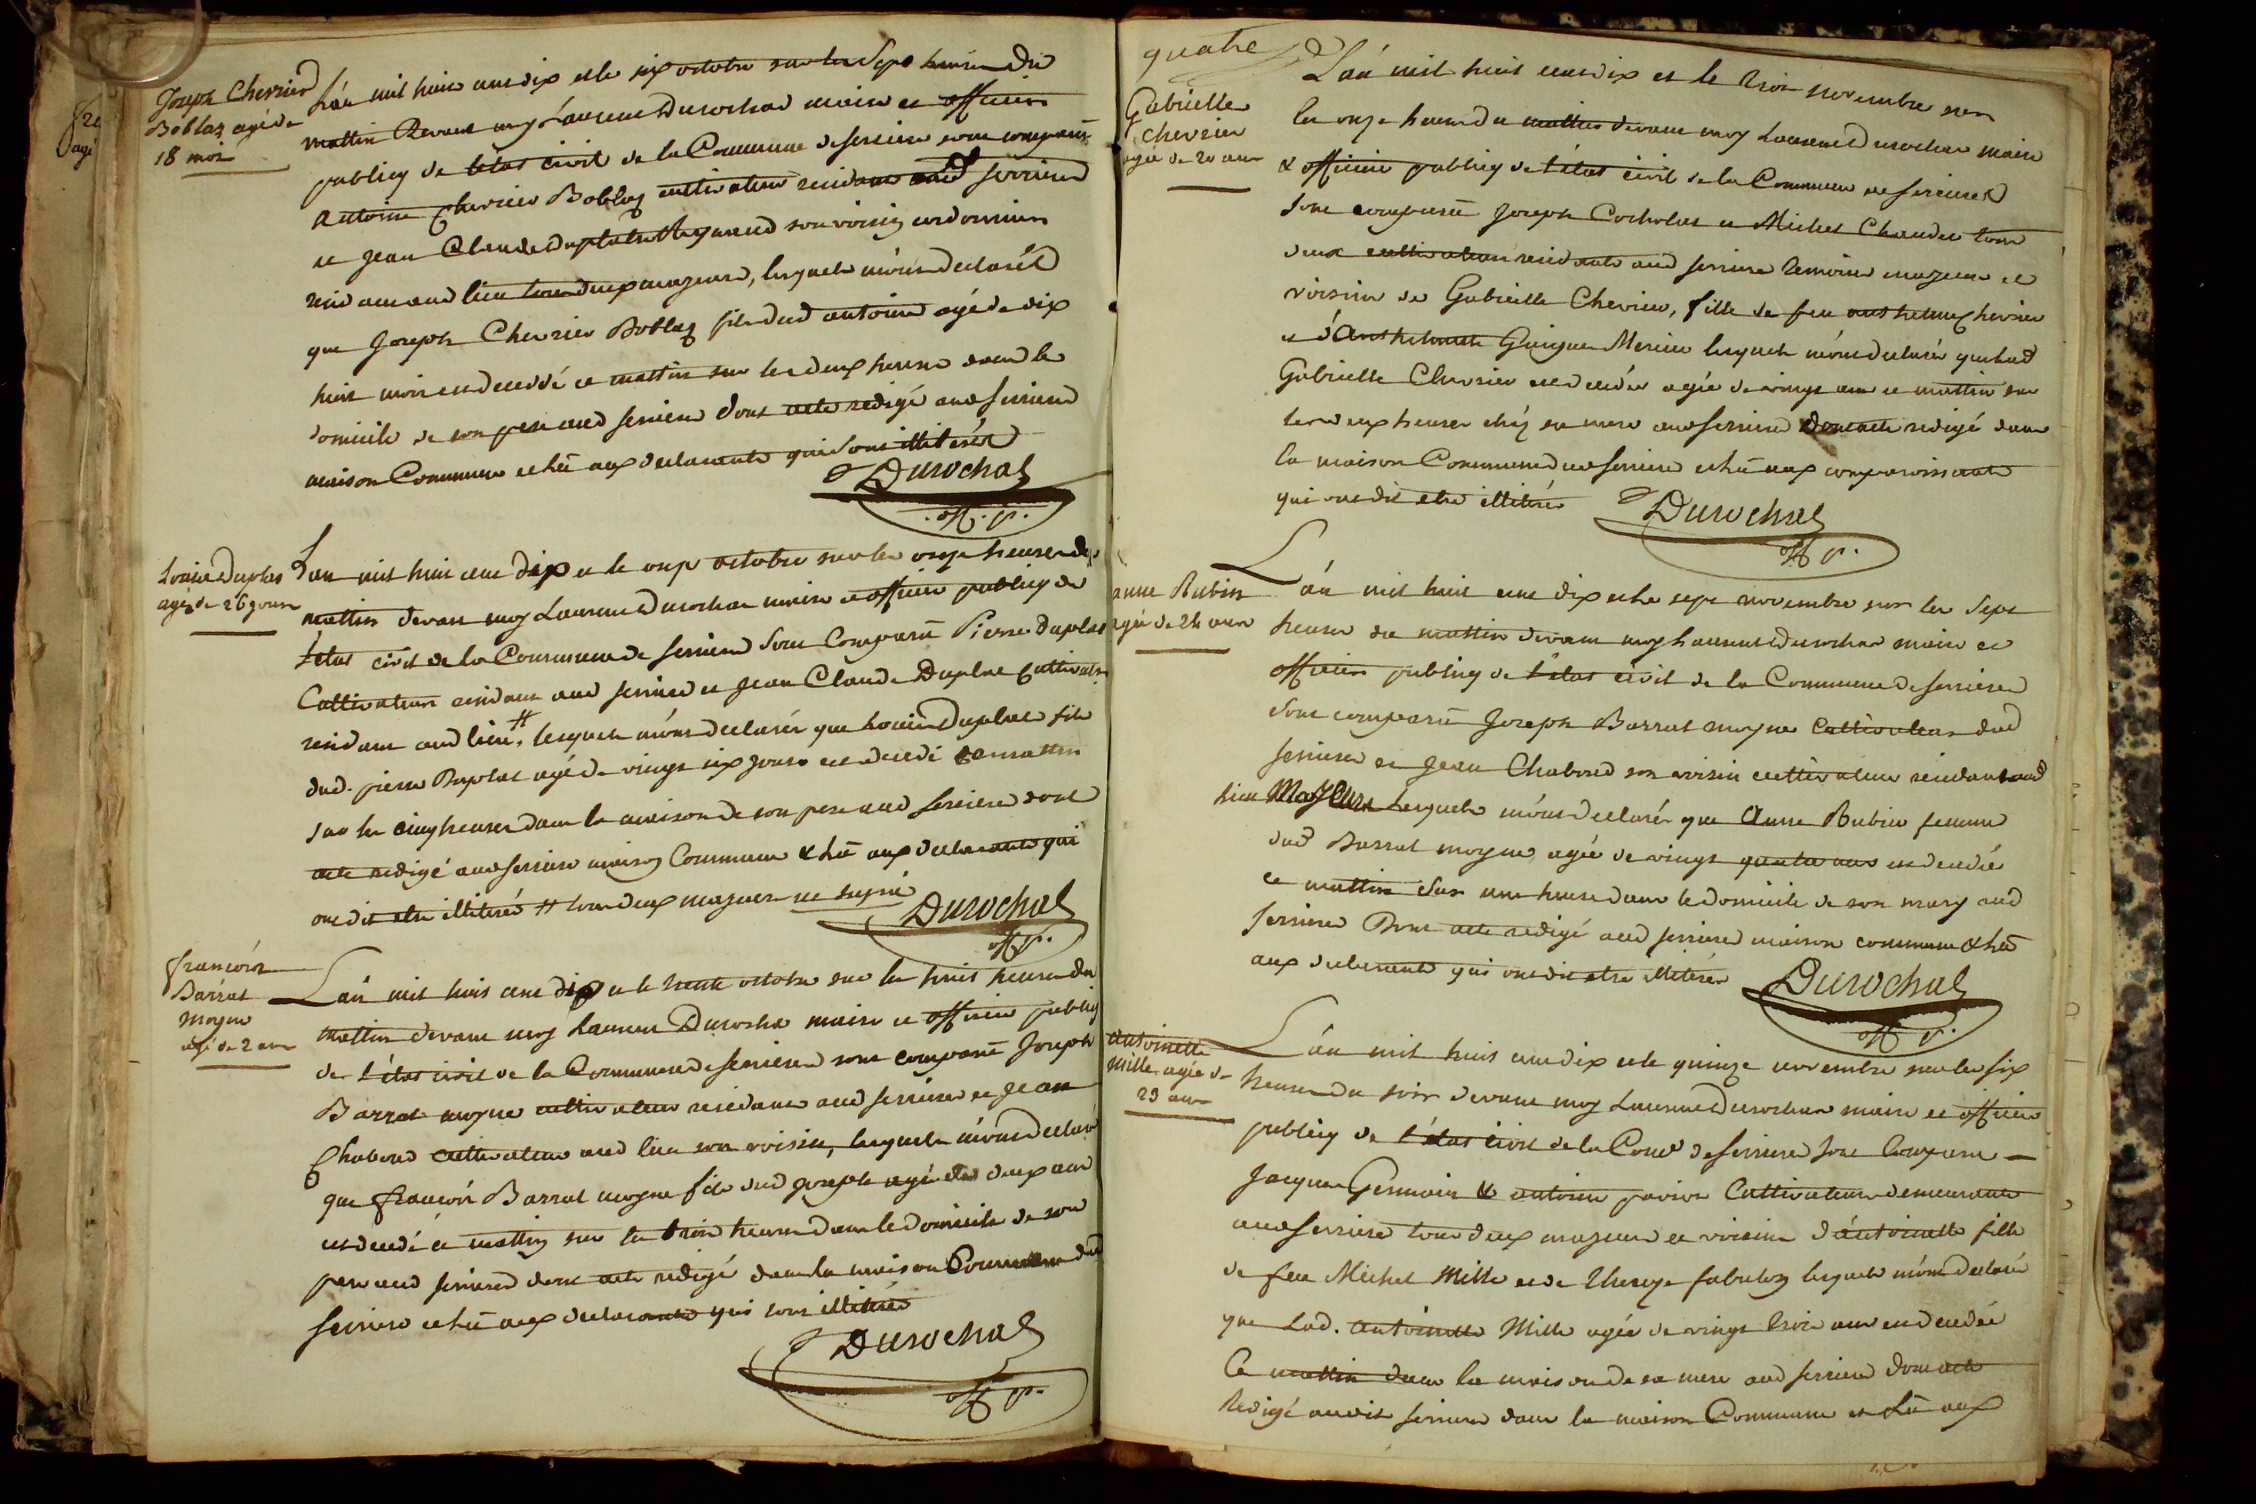 Joseph Chevrier
Boblaz agé de
18 mois
L'án mil huit cent dix et le six octobre sur les sept heures du
mattin devant moy Laurent Durochat maire et officier
publicq de l'état civil de la Commune de serrieres sont comparu
antoine Chevrier Boblaz cultivateur residant aud serrieres
et Jean Claude son voisin cordonnier
residant aud lieu tous deux majeurs, lesquels m'ont declaré
que Joseph Chevrier Boblaz fils dud antoine agé de dix
huit mois est decedé ce mattin sur les deux heures dans le
domicile de son pere aud serrieres dont acte redigé aud serrieres
maison Commune et lû aux declarants qui sont illiterés
Durochat
off. p.
Louis Duplas
agé de 26 jours
L'an mil huit cent dix et le onze octobre sur les onze heures du
mattin devant moy Laurent Durochat maire et officier publicq de
l'état civil de la Commune de serrieres sont Comparu Pierre Duplas
Cultivateur residant aud serrieres et Jean Claude Duplas Cultivateur
residant aud lieu, # lesquels m'ont declarés que Louis Duplas fils
dud. pierre Duplas agé de vingt six jours est decedé ce mattin
sur les cinq heures dans la maison de son pere aud serrieres dont
acte redigé aud serrieres maison Commune & lû aux declarants qui
ont dit etre illiterés # tous deux majeurs
Durochat
off p.
francois
Barrat
moyne
agé de 2 ans
L'án mil huit cent dix et le trente octobre sur les huit heures du
mattin devant moy Laurent Durochat maire et officier publiq
de l'état civil de la Commune de serrieres sont comparu Joseph
Barrat moyne cultivateur residant aud serrieres et Jean
Chabord cultivateur aud lieu son voisin, lesquels m'ont declaré
que francois Barrat moyne fils dud joseph agé de deux ans
est decedé ce mattin sur les trois heures dans le domicile de son
pere aud serrieres dont acte redigé dans la maison Commune dud
serrieres et lû aux declarants qui sont illiterés
Durochat
off p.
quatre
Gabrielle
Chevrier
agée de 20 ans
L'án mil huit cent dix et le trois novembre sur
les onze heures du mattin devant moy Laurent Durochat maire
& officier publicq de l'état civil de la Commune de serrieres
sont comparu Joseph Cocholat et Michel Chaudet tous
deux cultivateurs residants aud serrieres temoins majeurs et
voisins de Gabrielle Chevrier, fille de feu Chevrier
et d' lesquels m'ont declarés que lad
Gabrielle Chevrier est decedée agée de vingt ans ce mattin sur
les deux heures chéz sa mere aud serrieres dont acte redigé dans
la maison Commune dud serrieres et lû aux comparoissants
qui ont dit etre illiterés
Durochat
off p.
anne Rubin
agée de 24 ans
L'án mil huit cent dix et le sept novembre sur les sept
heures du mattin devant moy Laurent Durochat maire et
officier publicq de l'état civil de la Commune de serrieres
sont comparu Joseph Barrat moyne Cultivateur dud
serrieres et Jean Chabord son voisin cultivateur residant aud
lieu Majeurs Lesquels m'ont declarés que Anne Rubin femme
dud Barrat moyne agée de vingt quatre ans est decedée
ce mattin sur une heure dans le domicile de son mary aud
serrieres Dont acte redigé aud serrieres maison commune & lû
aux declarants qui ont dit etre illiterés
Durochat
off p.
antoinette
Mille agée de
23 ans
L'án mil huit cent dix et le quinze novembre sur les six
heures du soir devant moy Laurent Durochat maire et officier
publicq de l'état civil de la Come de serrieres sont Comparu
Jacques Germain & antoine pavion Cultivateurs demeurants
aud serrieres tous deux majeurs et voisins d'antoinette fille
de feu Michel Mille et de lesquels m'ont declaré
que Lad. antoinette Mille agée de vingt trois ans est decedée
Ce mattin dans la maison de sa mere aud serrieres dont acte
Redigé audit serrieres dans la maison Commune et Lû aux